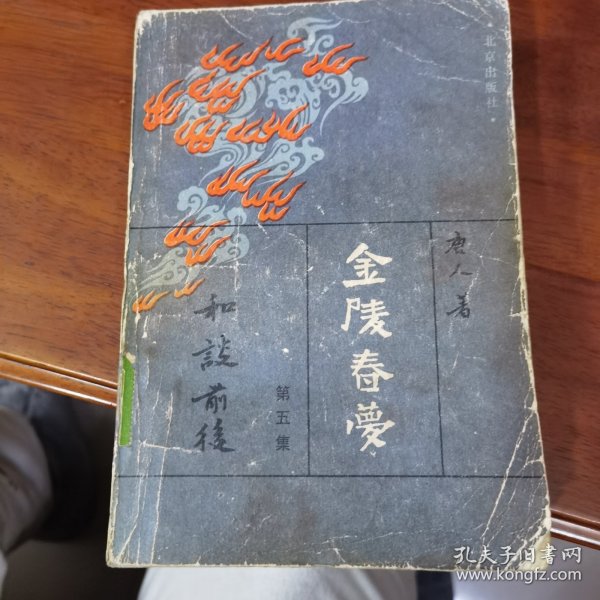 北京出版社
唐人 著
金陵春夢
第五集
和談前後
孔夫子旧书网
www.kongfz.com